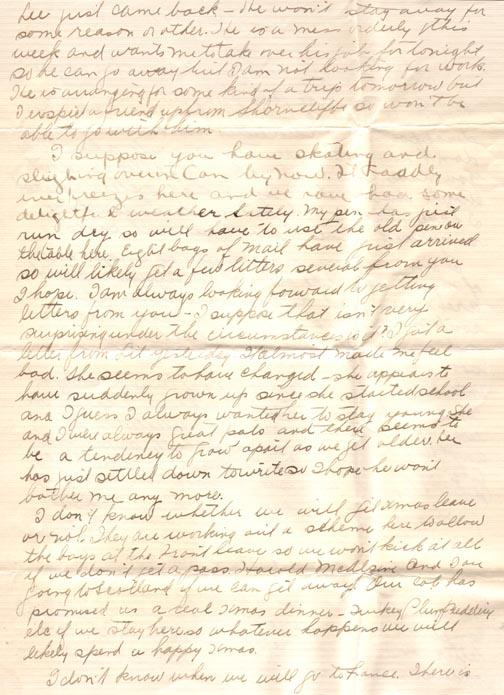 Lee just came back - He won't stay away for
some reason or other. He is a mess orderly this
week and wants me to take over his job for tonight
so he can go away but I am not looking for work.
He is arranging for some kind of a trip tomorrow but
I expect a friend up from Shorncliffe so won't be
able to go with him
I suppose you have skating and
sleighing over in Can by now. It
ever freezes here and we have had some
delightful weather lately. My pen has just
run dry so will have to use the old pen on
the table here. Eight bags of mail have just arrived
so will likely get a few letters several from you
I hope. I am always looking forward to getting
letters from you - I suppose that isn't very
surprising under the circumstances is it? I got a
letter from Lil yesterday It almost made me feel
bad. She seems to have changed - she appears to
have suddenly grown up since she started school
and I guess I always wanted her to stay young. She
and I were always great pals and there seems to
be a tendency to grow apart as we get older. Lee
has just settled down to write so I hope he won't
bother me any more.
I don't know whether we will get Xmas leave
or not. They are working out a scheme here to allow
the boys at the Front leave so we won't kick at all
if we don't get a pass Harold McAlpine and I are
going to Scotland if we can get away. Our
promised us a real Xmas dinner - Turkey Plum Pudding
etc if we stay here so whatever happens we will
likely spend a happy Xmas.
I don't know when we will go to France. There is